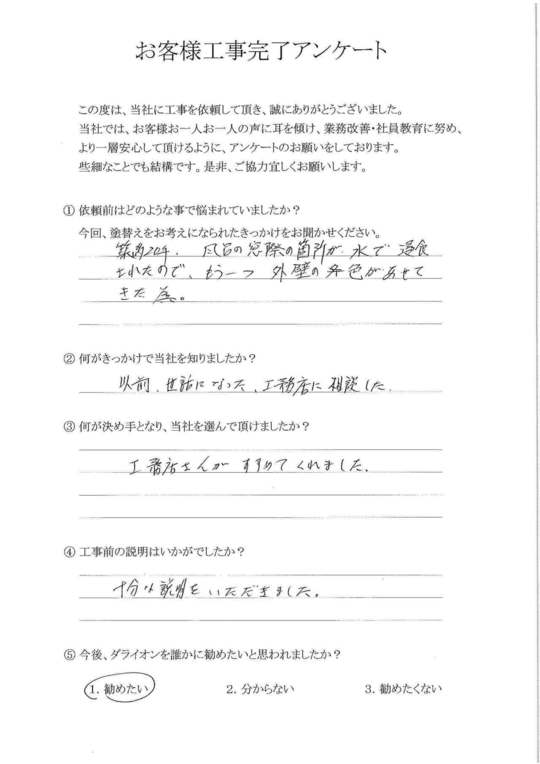 お客様工事完了アンケート
この度は、当社に工事を依頼して頂き、誠にありがとうございました。
当社では、お客様お一人お一人の声に耳を傾け、業務改善・社員教育に努め、
より一層安心して頂けるように、アンケートのお願いをしております。
些細なことでも結構です。是非、ご協力宜しくお願いします。
① 依頼前はどのような事で悩まれていましたか？
今回、塗替えをお考えになられたきっかけをお聞かせください。
風呂の窓際の箇所が、水で浸食
されたので、もう一つ 外壁の 色があせて
きた為。
② 何がきっかけで当社を知りましたか？
以前、世話になった、工務店に相談した。
③ 何が決め手となり、当社を選んで頂けましたか？
工務店さんが すすめてくれました。
④ 工事前の説明はいかがでしたか？
十分な説明をいただきました。
⑤ 今後、ダライオンを誰かに勧めたいと思われましたか？
1. 勧めたい 2. 分からない 3. 勧めたくない